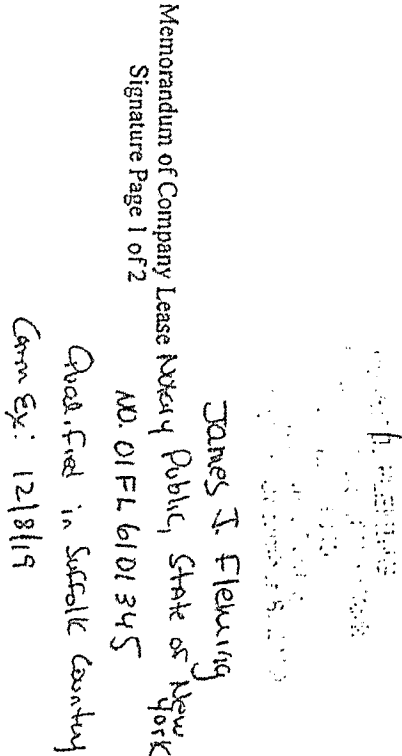 James J. Fleming
Notary Public, State of New York
NO. 01FL6101345
Qualified in Suffolk County
Comm Ex: 12/8/19
Memorandum of Company Lease
Signature Page 1 of 2